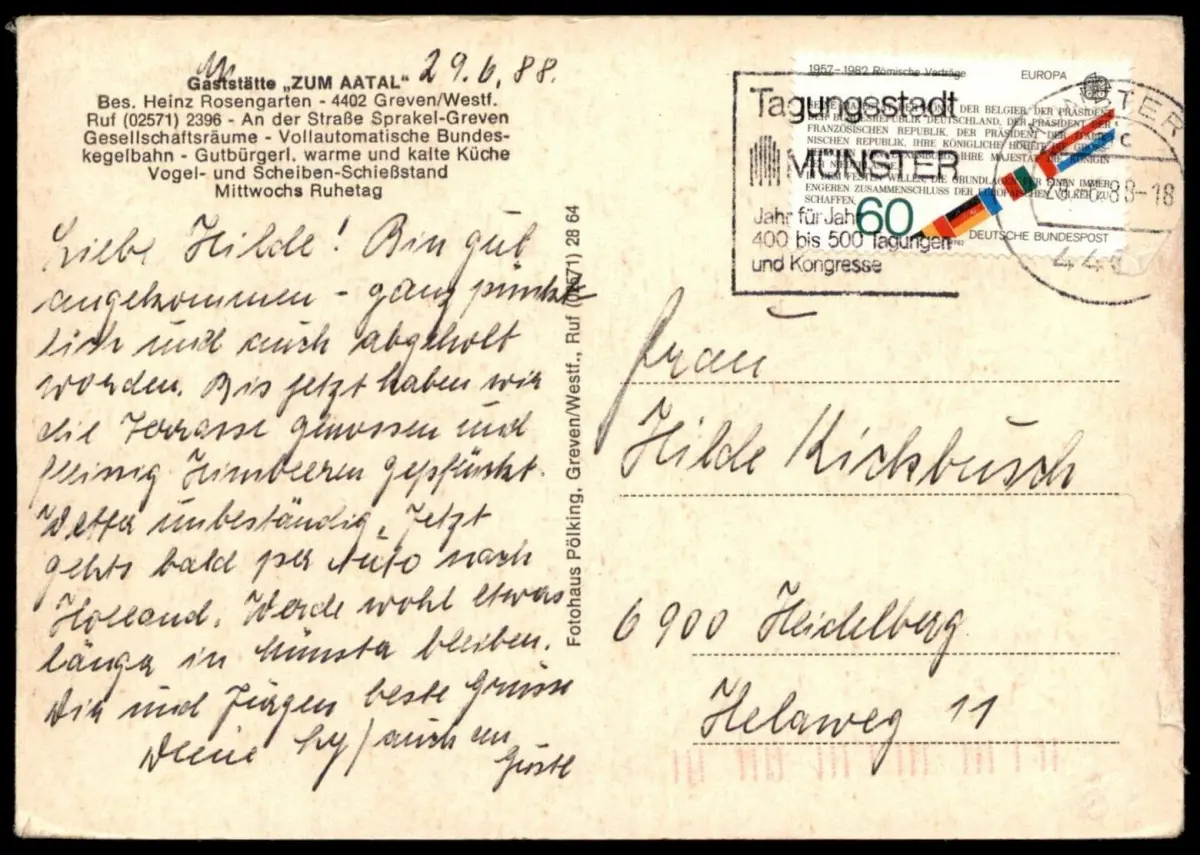 29.6.88.
Gaststätte „ZUM AATAL"
Bes. Heinz Rosengarten - 4402 Greven/Westf.
Ruf (02571) 2396 - An der Straße Sprakel-Greven
Gesellschaftsräume - Vollautomatische Bundes-
kegelbahn - Gutbürgerl. warme und kalte Küche
Vogel- und Scheiben-Schießstand
Mittwochs Ruhetag
Liebe Hilde! Bin gut
angekommen - ganz pünkt-
lich und auch abgeholt
worden. Bis jetzt haben wir
die Terrasse genossen und
fleissig Himbeeren gepflückt.
Wetter unbeständig. Jetzt
gehts bald per Auto nach
Holland. Werde wohl etwas
länger in Münster bleiben.
Dir und Jürgen beste Grüsse
Deine / auch an
Fotohaus Pölking, Greven/Westf., Ruf (02571) 28 64
1957-1982 Römische Verträge
EUROPA
DER BELGIER, DER PRÄSIDENT
DER BUNDESREPUBLIK DEUTSCHLAND, DER PRÄSIDENT DER
FRANZÖSISCHEN REPUBLIK, DER PRÄSIDENT DER
NISCHEN REPUBLIK, IHRE KÖNIGLICHE HOHEIT
IHRE MAJESTÄT DIE KÖNIGIN
WILLEN, DIE GRUNDLAGEN FÜR EINEN IMMER
ENGEREN ZUSAMMENSCHLUSS DER EUROPÄISCHEN VÖLKER ZU
SCHAFFEN,
60
DEUTSCHE BUNDESPOST
Tagungsstadt
MÜNSTER
Jahr für Jahr
400 bis 500 Tagungen
und Kongresse
Frau
Hilde Kickbusch
6900 Heidelberg
Helaweg 11